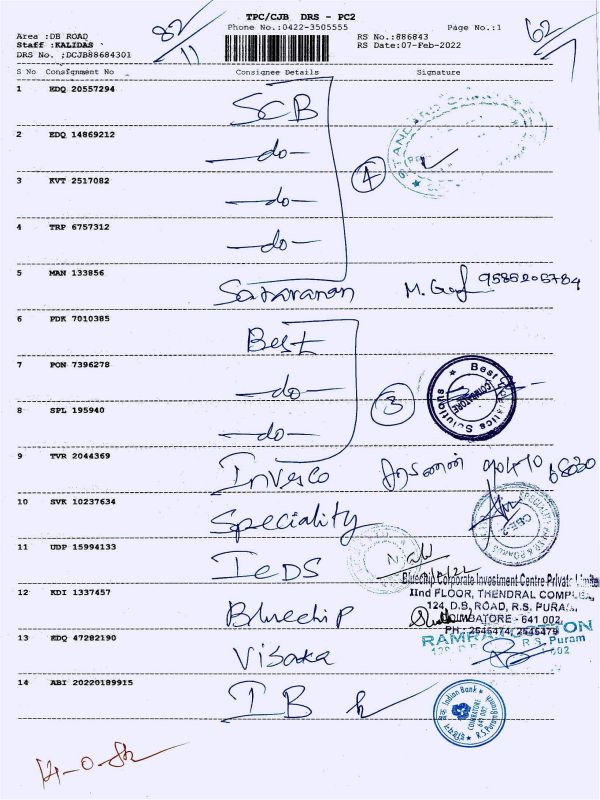 TPC/CJB DRS - PC2
82/11
Phone No.:0422-3505555
Page No.:1
62/7
Area :DB ROAD
Staff :KALIDAS
DRS No. ;DCJB88684301
RS No.:886843
RS Date:07-Feb-2022
S No Consignment No Consignee Details Signature
1 EDQ 20557294 SCB
2 EDQ 14869212 —do—
3 KVT 2517082 —do—
4
4 TRP 6757312 —do—
5 MAN 133856 Saravanan M.
6 PDK 7010385 Best
7 PON 7396278 —do—
3
8 SPL 195940 —do—
Best Solutions
COIMBATORE
9 TVR 2044369 Invesco சரவணன்
10 SVK 10237634 Speciality
CBE-2
11 UDP 15994133 IeDS
Bluechip Corporate Investment Centre Private Limited
IInd FLOOR, THENDRAL COMPLEX,
12 KDI 1337457 Bluechip
124, D.B. ROAD, R.S. PURAM,
COIMBATORE - 641 002.
PH : 2546474, 2546479
13 EDQ 47282190 Visaka
R.S. Puram
14 ABI 20220189915 IB
Indian Bank
COIMBATORE
641 002
R.S.Puram Branch
14-0-